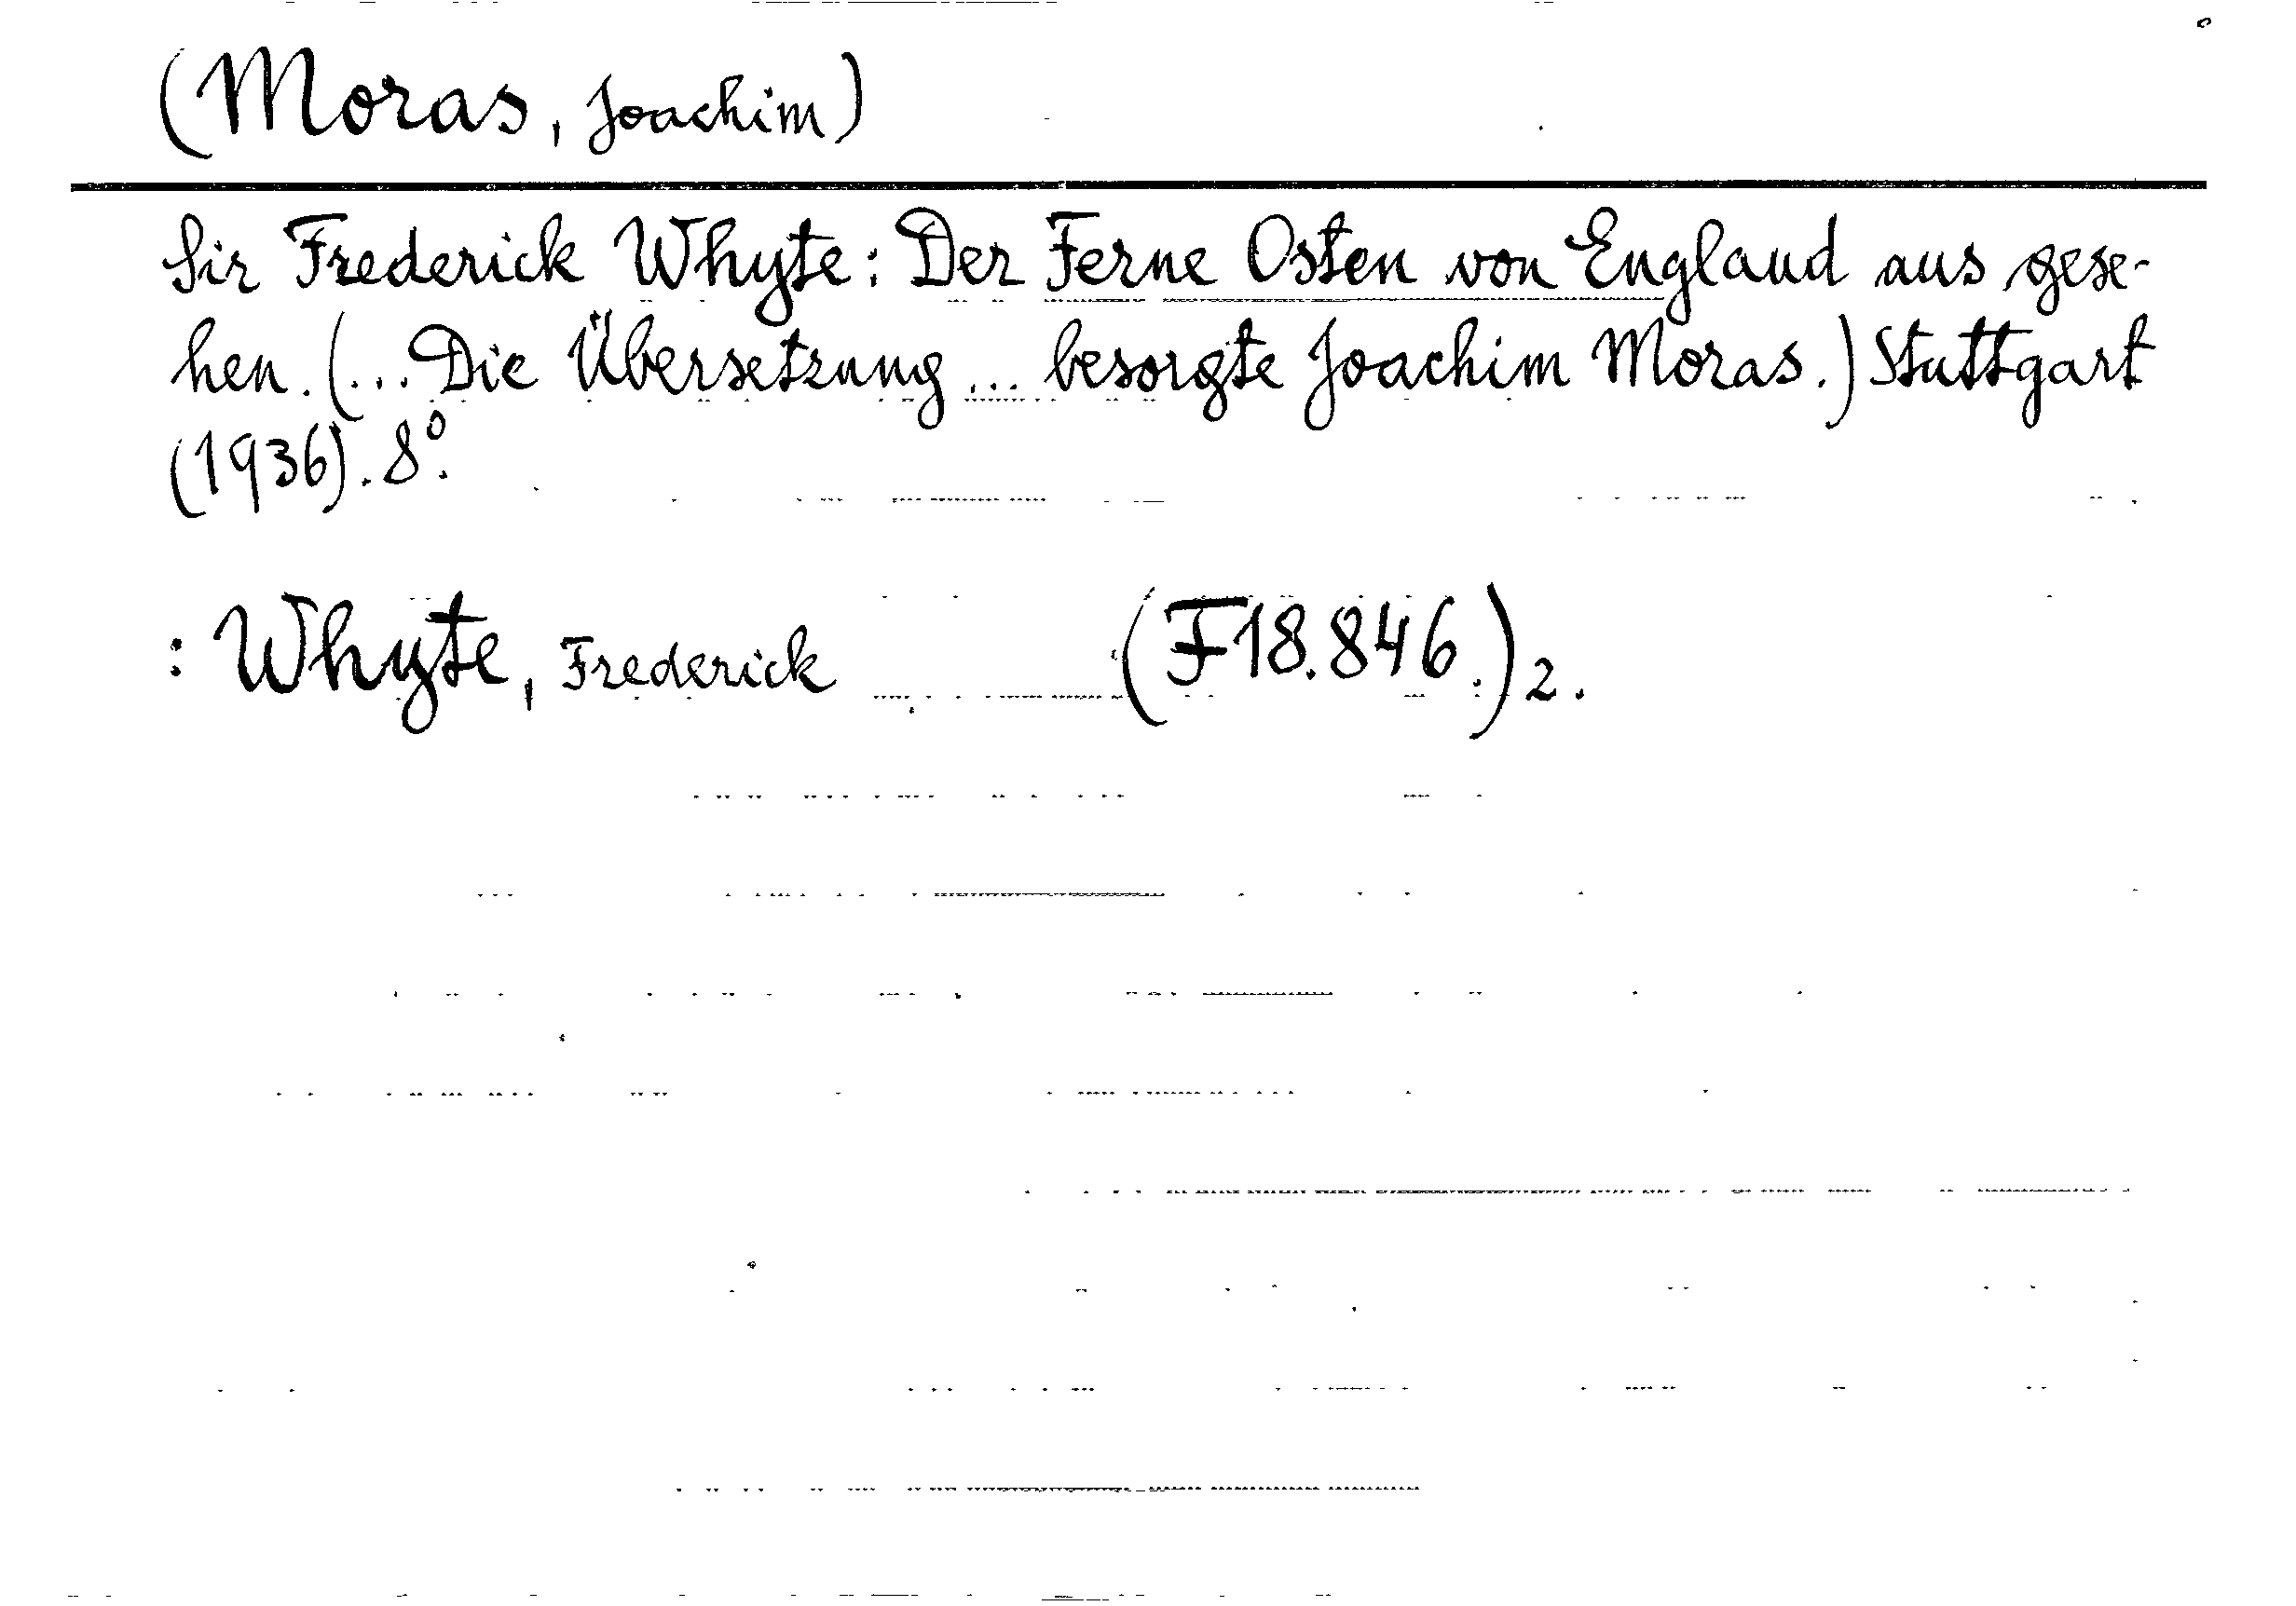 (Moras, Joachim)
Sir Frederick Whyte: Der Ferne Osten von England aus gese-
hen. (... Die Übersetzung ... besorgte Joachim Moras.) Stuttgart
(1936). 8°.
: Whyte, Frederick (F 18.846.) 2.